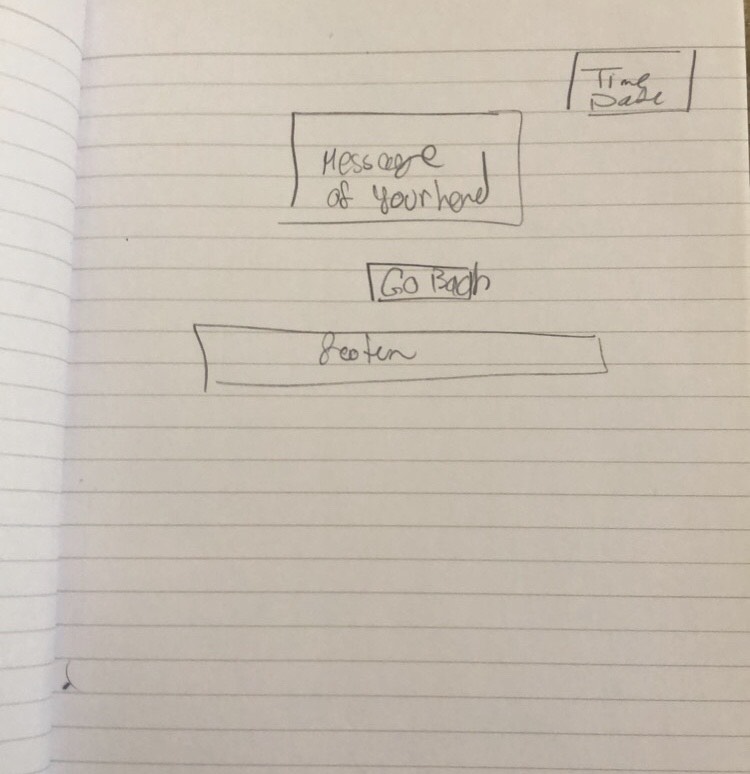 Time
Date
Message
of your
Go Back
footer